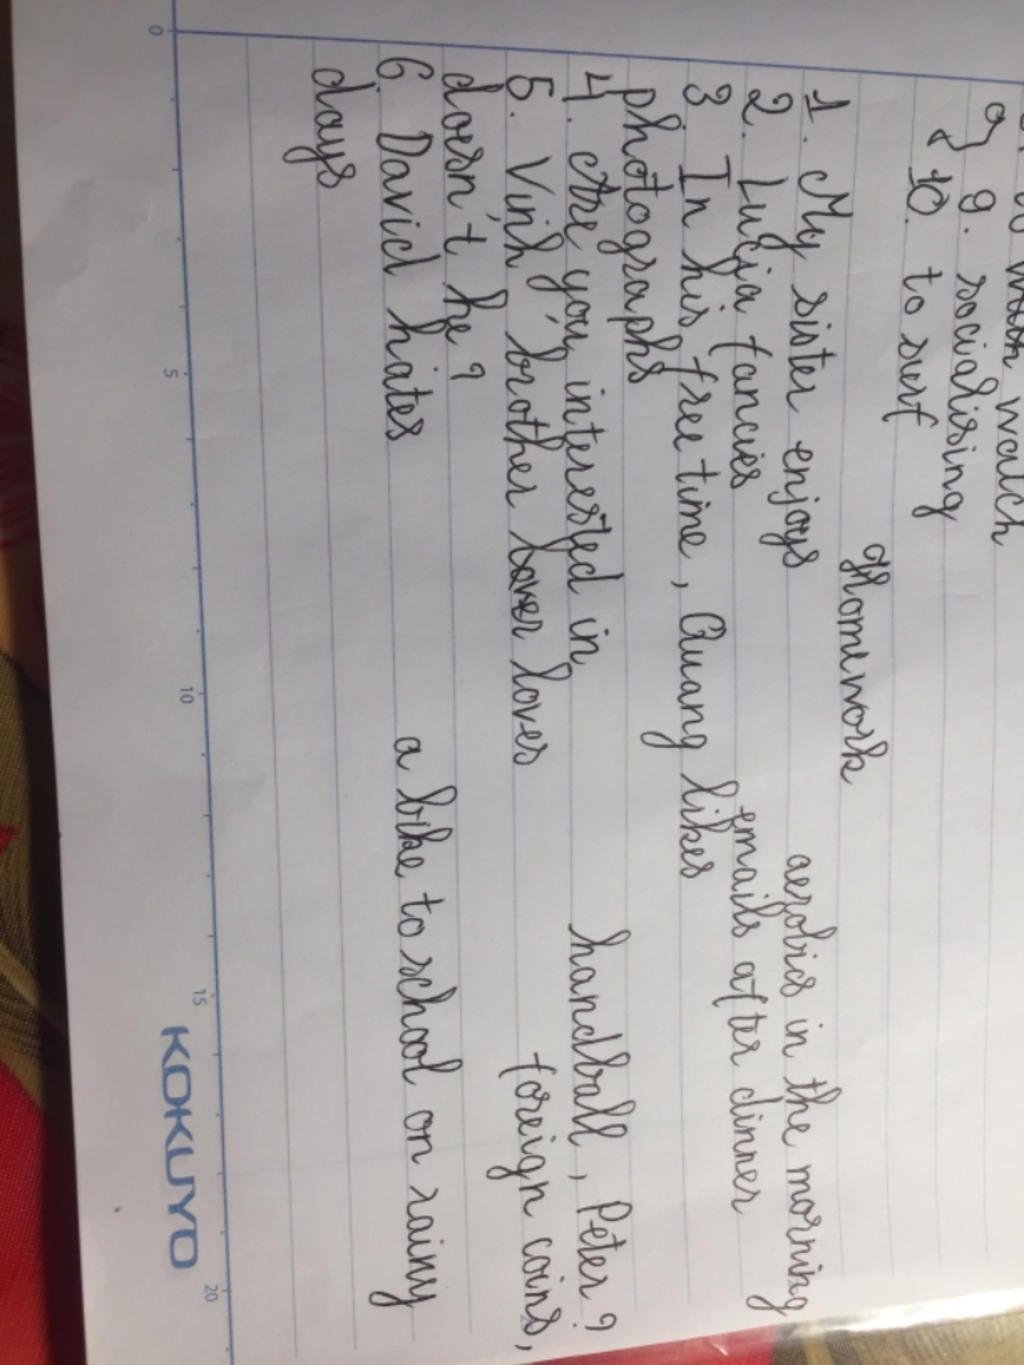 wash watch
9. socialising
10. to surf
Homework
1. My sister enjoys aerobics in the morning
2. Lucia fancies emails after dinner
3. In his free time, Quang likes
photographs
4. Are you interested in handball, Peter?
5. Vinh's brother lover lover loves foreign coins,
doesn't he?
6. David hates a bike to school on rainy
days
0 5 10 15 20
KOKUYO